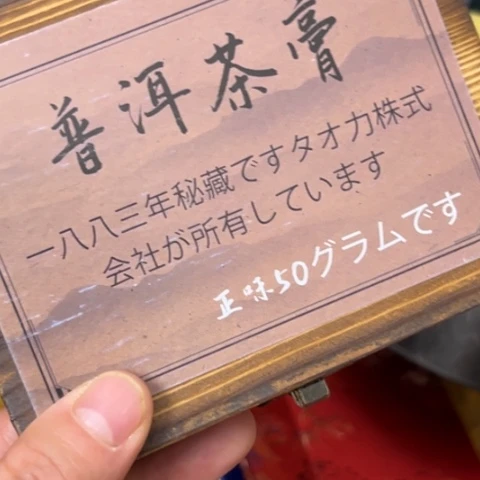 普洱茶膏
一八八三年秘藏ですタオカ株式
会社が所有しています
正味50グラムです